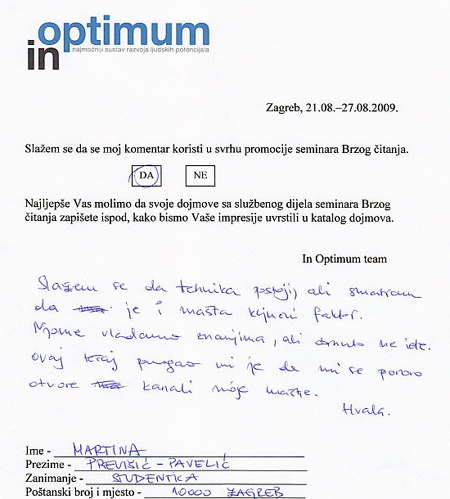 optimum
in najmoćniji sustav razvoja ljudskih potencijala
Zagreb, 21.08.–27.08.2009.
Slažem se da se moj komentar koristi u svrhu promocije seminara Brzog čitanja.
DA NE
Najljepše Vas molimo da svoje dojmove sa službenog dijela seminara Brzog
čitanja zapišete ispod, kako bismo Vaše impresije uvrstili u katalog dojmova.
In Optimum team
Slažem se da tehnika postoji, ali smatram
da je i mašta ključni faktor.
Njome vladamo znanjima, ali ne ide.
ovaj tečaj pomogao mi je da mi se ponovo
otvore kanali moje mašte.
Hvala.
Ime - MARTINA
Prezime - PREVIŠIĆ - PAVELIĆ
Zanimanje - STUDENTICA
Poštanski broj i mjesto - 10000 ZAGREB